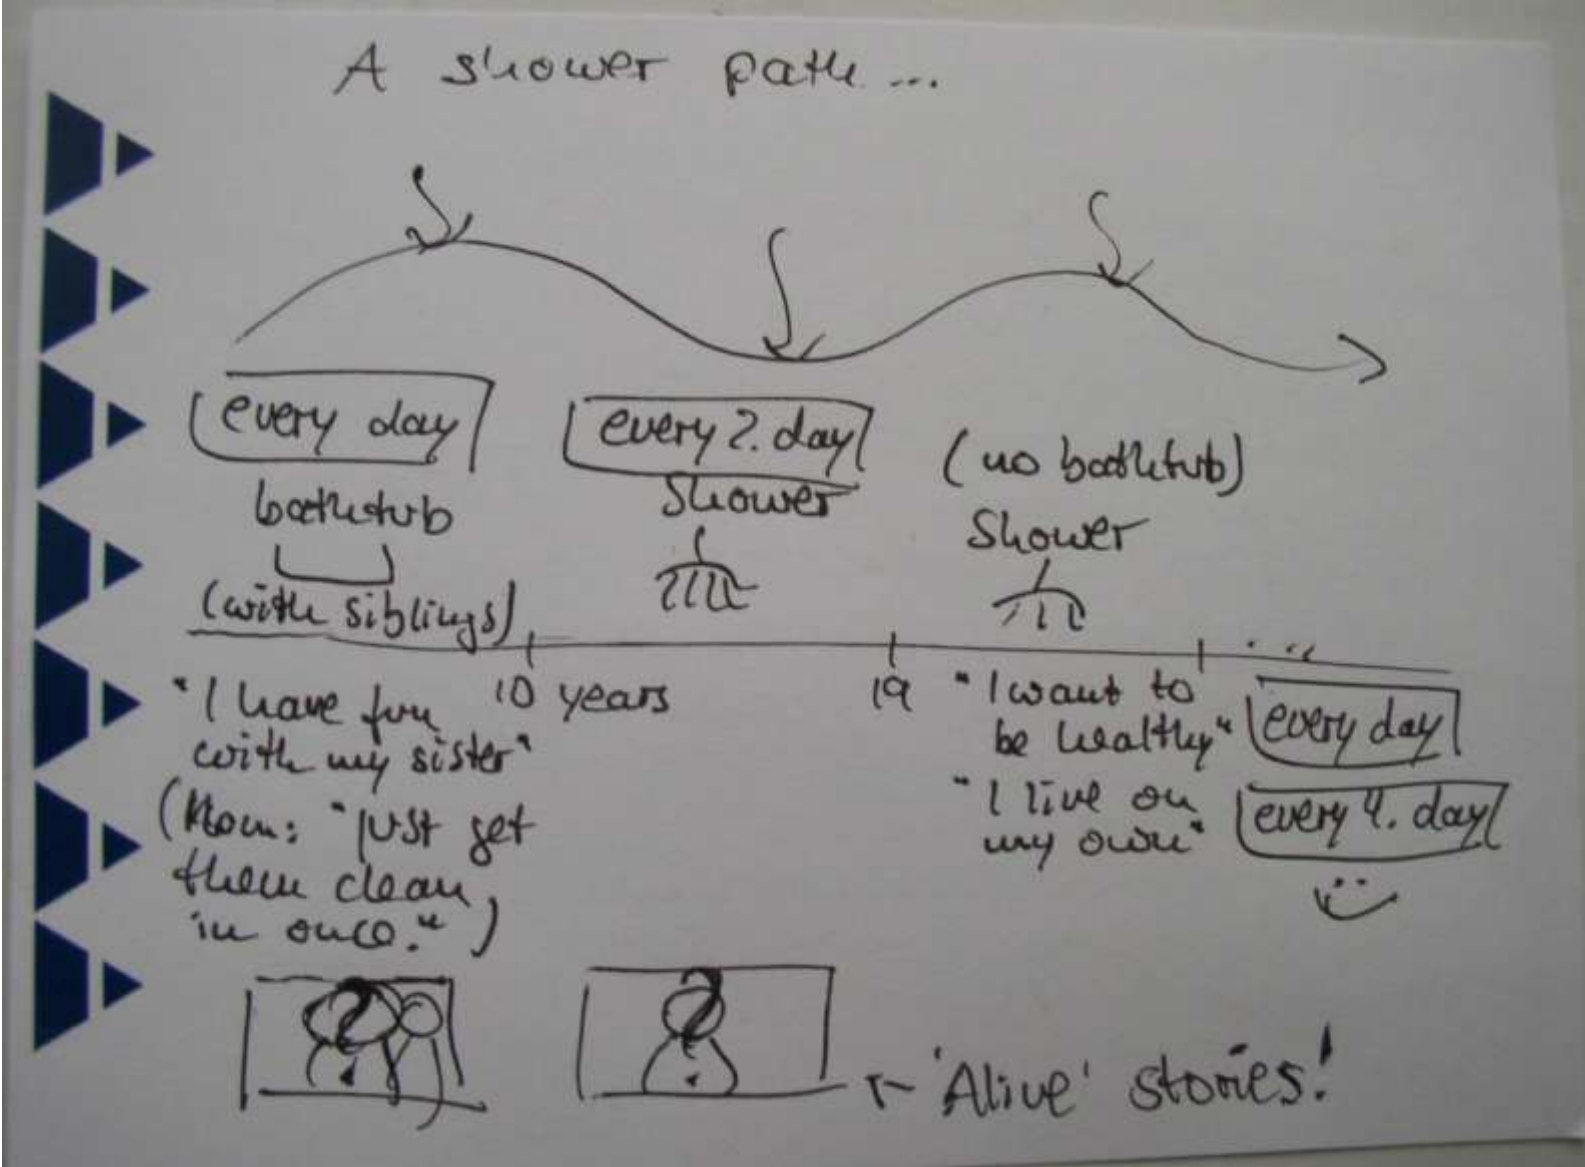 A shower path...
every day
bathtub
(with siblings)
every 2. day
Shower
(no bathtub)
Shower
10 years
19
...
"I have fun
with my sister"
(Mom: "just get
them clean,
in once.")
"I want to
be healthy"
every day
"I live on
my own"
every 4. day
'Alive' stories!